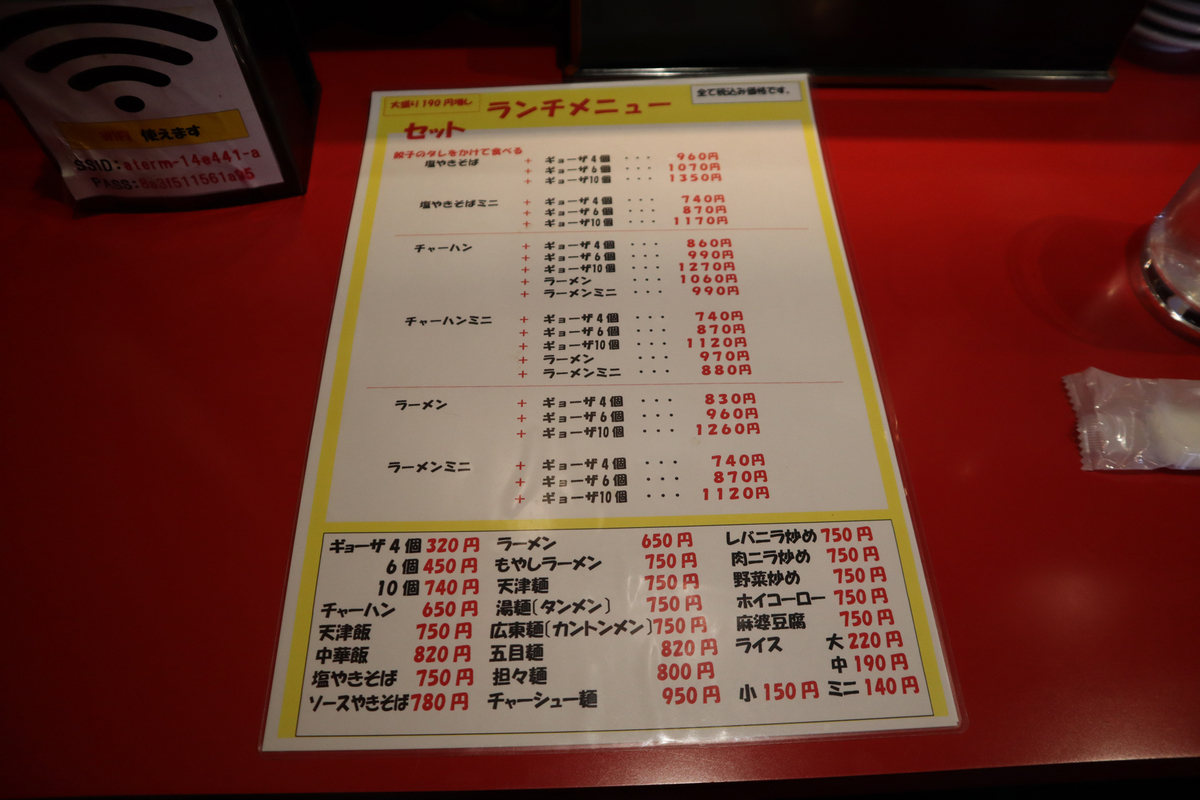 WiFi 使えます
SSID:aterm-14e441-a
PASS:8a3f511561a95
大盛り190円増し
ランチメニュー
全て税込み価格です。
セット
餃子のタレをかけて食べる
塩やきそば + ギョーザ4個 ・・・ 960円
+ ギョーザ6個 ・・・ 1070円
+ ギョーザ10個 ・・・ 1350円
塩やきそばミニ + ギョーザ4個 ・・・ 740円
+ ギョーザ6個 ・・・ 870円
+ ギョーザ10個 ・・・ 1170円
チャーハン + ギョーザ4個 ・・・ 860円
+ ギョーザ6個 ・・・ 990円
+ ギョーザ10個 ・・・ 1270円
+ ラーメン ・・・ 1060円
+ ラーメンミニ ・・・ 990円
チャーハンミニ + ギョーザ4個 ・・・ 740円
+ ギョーザ6個 ・・・ 870円
+ ギョーザ10個 ・・・ 1120円
+ ラーメン ・・・ 970円
+ ラーメンミニ ・・・ 880円
ラーメン + ギョーザ4個 ・・・ 830円
+ ギョーザ6個 ・・・ 960円
+ ギョーザ10個 ・・・ 1260円
ラーメンミニ + ギョーザ4個 ・・・ 740円
+ ギョーザ6個 ・・・ 870円
+ ギョーザ10個 ・・・ 1120円
ギョーザ4個 320円
6個 450円
10個 740円
チャーハン 650円
天津飯 750円
中華飯 820円
塩やきそば 750円
ソースやきそば 780円
ラーメン 650円
もやしラーメン 750円
天津麺 750円
湯麺〔タンメン〕 750円
広東麺〔カントンメン〕 750円
五目麺 820円
担々麺 800円
チャーシュー麺 950円
レバニラ炒め 750円
肉ニラ炒め 750円
野菜炒め 750円
ホイコーロー 750円
麻婆豆腐 750円
ライス 大 220円
中 190円
小 150円 ミニ 140円